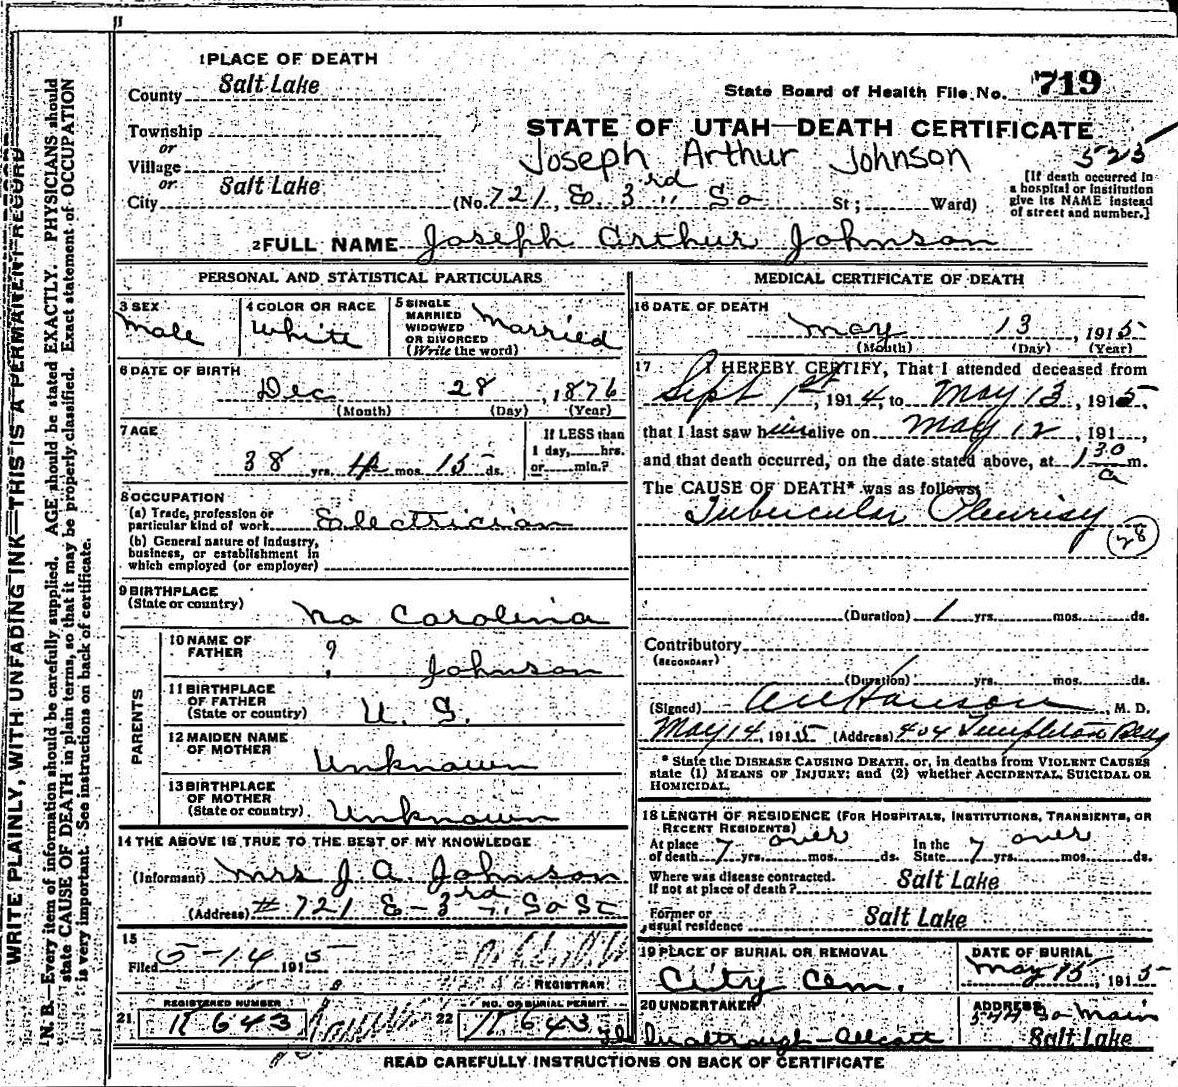 WRITE PLAINLY, WITH UNFADING INK—THIS IS A PERMANENT RECORD
N. B.—Every item of information should be carefully supplied. AGE should be stated EXACTLY. PHYSICIANS should
state CAUSE OF DEATH in plain terms, so that it may be properly classified. Exact statement of OCCUPATION
is very important. See instructions on back of certificate.
1 PLACE OF DEATH
County Salt Lake
State Board of Health File No. 719
Township
or
Village
or
City Salt Lake
STATE OF UTAH—DEATH CERTIFICATE
Joseph Arthur Johnson
525
[If death occurred in
a hospital or institution
give its NAME instead
of street and number.]
(No. 721, E. 3rd So St; Ward)
2 FULL NAME Joseph Arthur Johnson
PERSONAL AND STATISTICAL PARTICULARS
3 SEX
Male
4 COLOR OR RACE
White
5 SINGLE
MARRIED
WIDOWED
OR DIVORCED
(Write the word)
Married
6 DATE OF BIRTH
Dec 28, 1876
(Month) (Day) (Year)
7 AGE
38 yrs. 4 mos. 15 ds.
If LESS than
1 day, hrs.
or min.?
8 OCCUPATION
(a) Trade, profession or
particular kind of work Electrician
(b) General nature of industry,
business, or establishment in
which employed (or employer)
9 BIRTHPLACE
(State or country)
No Carolina
PARENTS
10 NAME OF
FATHER
? Johnson
11 BIRTHPLACE
OF FATHER
(State or country)
U. S.
12 MAIDEN NAME
OF MOTHER
Unknown
13 BIRTHPLACE
OF MOTHER
(State or country)
Unknown
14 THE ABOVE IS TRUE TO THE BEST OF MY KNOWLEDGE
(Informant) Mrs J. A. Johnson
(Address) # 721 E - 3rd So St
15
Filed 5-14 1915
REGISTRAR
21 REGISTERED NUMBER
K 643
22 NO. OF BURIAL PERMIT
K 643
MEDICAL CERTIFICATE OF DEATH
16 DATE OF DEATH
May 13, 1915
(Month) (Day) (Year)
17 I HEREBY CERTIFY, That I attended deceased from
Sept 1st, 1914, to May 13, 1915,
that I last saw him alive on May 12, 191 ,
and that death occurred, on the date stated above, at 1 30 a m.
The CAUSE OF DEATH* was as follows:
Tubercular Pleurisy
28
(Duration) 1 yrs. mos. ds.
Contributory
(SECONDARY)
(Duration) yrs. mos. ds.
(Signed) M. D.
May 14, 1915 (Address) 404 Templeton Bldg
* State the DISEASE CAUSING DEATH, or, in deaths from VIOLENT CAUSES
state (1) MEANS OF INJURY; and (2) whether ACCIDENTAL, SUICIDAL OR
HOMICIDAL.
18 LENGTH OF RESIDENCE (FOR HOSPITALS, INSTITUTIONS, TRANSIENTS, OR
RECENT RESIDENTS)
At place
of death 7 yrs. over mos. ds. In the
State 7 yrs. over mos. ds.
Where was disease contracted.
if not at place of death? Salt Lake
Former or
usual residence Salt Lake
19 PLACE OF BURIAL OR REMOVAL
City Cem.
DATE OF BURIAL
May 15, 1915
20 UNDERTAKER
ADDRESS
So Main
Salt Lake
READ CAREFULLY INSTRUCTIONS ON BACK OF CERTIFICATE